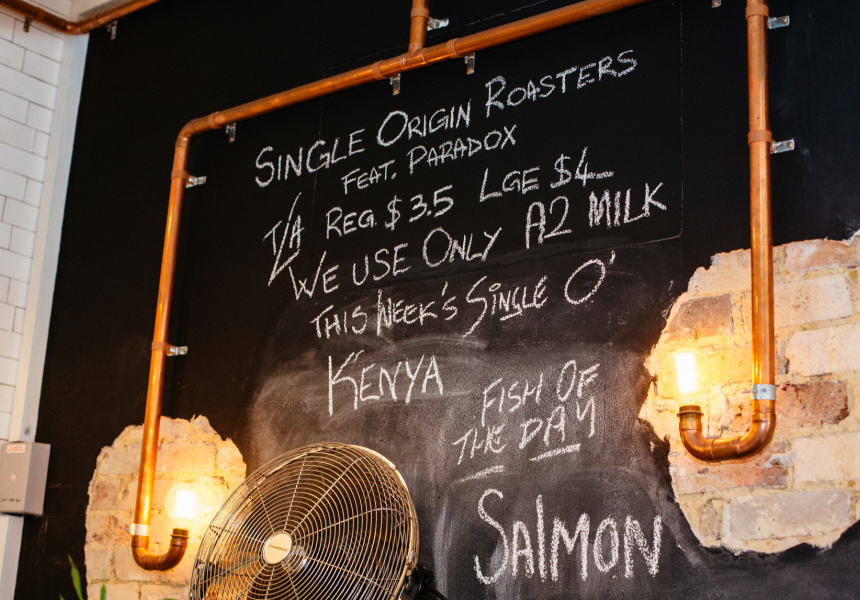 SINGLE ORIGIN ROASTERS
FEAT. PARADOX
T/A REG $3.5 LGE $4_
WE USE ONLY A2 MILK
THIS WEEK'S SINGLE O'
KENYA
FISH OF
THE DAY
SALMON